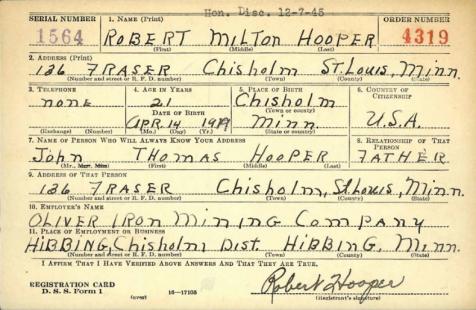 Hon. Disc. 12-7-45
SERIAL NUMBER 1. NAME (Print) ORDER NUMBER
1564 ROBERT MILTON HOOPER 4319
(First) (Middle) (Last)
2. ADDRESS (Print)
136 FRASER Chisholm St. Louis, Minn.
(Number and street or R. F. D. number) (Town) (County) (State)
3. TELEPHONE 4. AGE IN YEARS 5. PLACE OF BIRTH 6. COUNTRY OF CITIZENSHIP
none 21 Chisholm
DATE OF BIRTH (Town or county)
APR. 14 1919 Minn. U.S.A.
(Exchange) (Number) (Mo.) (Day) (Yr.) (State or country)
7. NAME OF PERSON WHO WILL ALWAYS KNOW YOUR ADDRESS 8. RELATIONSHIP OF THAT PERSON
John THOMAS HOOPER FATHER
(Mr., Mrs., Miss) (First) (Middle) (Last)
9. ADDRESS OF THAT PERSON
136 FRASER Chisholm, St. Louis, Minn.
(Number and street or R. F. D. number) (Town) (County) (State)
10. EMPLOYER'S NAME
OLIVER IRON Mining Company
11. PLACE OF EMPLOYMENT OR BUSINESS
HIBBING, Chisholm Dist. HIBBING, Minn.
(Number and street or R. F. D. number) (Town) (County) (State)
I AFFIRM THAT I HAVE VERIFIED ABOVE ANSWERS AND THAT THEY ARE TRUE.
Robert Hooper
REGISTRATION CARD
D. S. S. Form 1 (over) 16—17105 (Registrant's signature)